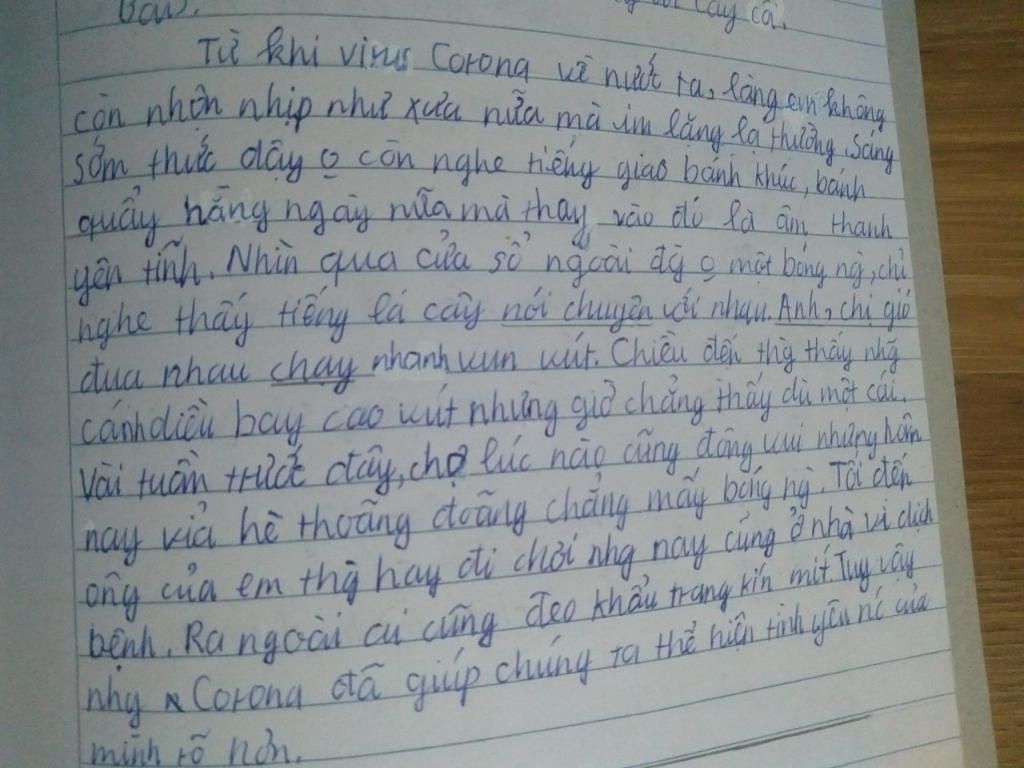 cây cối.
Từ khi virus Corona về nước ta, làng em không
còn nhộn nhịp như xưa nữa mà im lặng lạ thường. Sáng
sớm thức dậy 0 còn nghe tiếng giao bánh khúc, bánh
quẩy hằng ngày nữa mà thay vào đó là âm thanh
yên tĩnh. Nhìn qua cửa sổ ngoài đg 0 một bóng ng, chỉ
nghe thấy tiếng lá cây nói chuyện với nhau. Anh, chị gió
đua nhau chạy nhanh vun vút. Chiều đến thg thấy nhg
cánh diều bay cao vút nhưng giờ chẳng thấy dù một cái.
Vài tuần trước đây, chợ lúc nào cũng đông vui nhưng hôm
nay vỉa hè thoãng đoãng chẳng mấy bóng ng. Tối đến
ông của em thg hay đi chơi nhg nay cũng ở nhà vì dịch
bệnh. Ra ngoài cứ cũng đeo khẩu trang kín mít. Tuy vậy
nhg Corona đã giúp chúng ta thể hiện tình yêu nc của
mình rõ hơn.